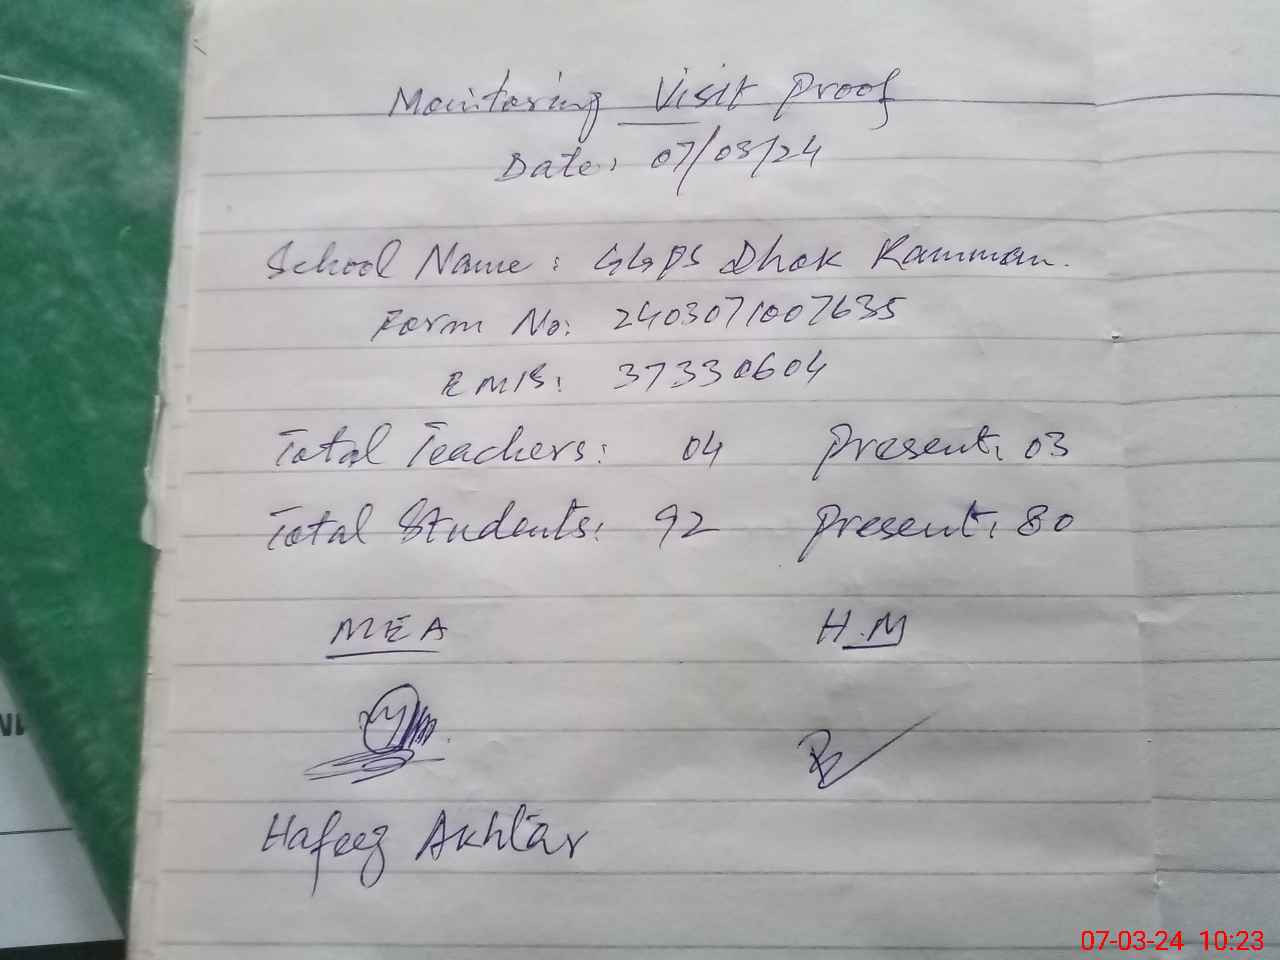 Monitoring Visit Proof
Date: 07/03/24
School Name: GGPS Dhok Ramman.
Form No: 2403071007635
EMIS: 37330604
Total Teachers: 04 Present: 03
Total Students: 92 Present: 80
MEA H.M
Hafeez Akhtar
07-03-24 10:23